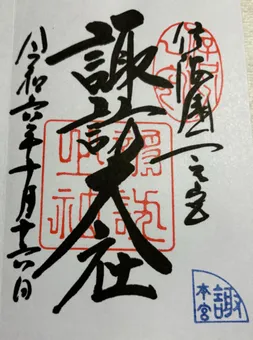 信濃國一之宮
諏訪大社
令和六年十月十六日
諏
本宮